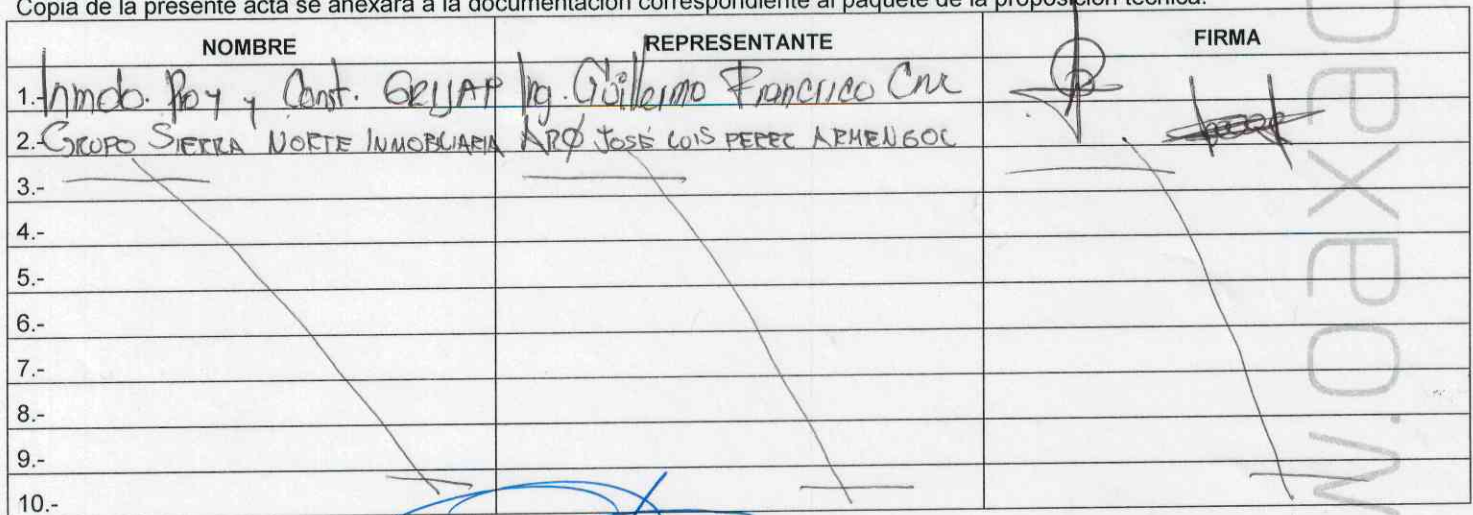 Copia de la presente acta se anexará a la documentación correspondiente al paquete de la proposición técnica.
NOMBRE REPRESENTANTE FIRMA
1.- Inmob. Roy y Const. Ing. Guillermo Francisco
2.- GRUPO SIERRA NORTE INMOBILIARIA ARQ JOSÉ LUIS PEREZ ARMENGOL
3.-
4.-
5.-
6.-
7.-
8.-
9.-
10.-